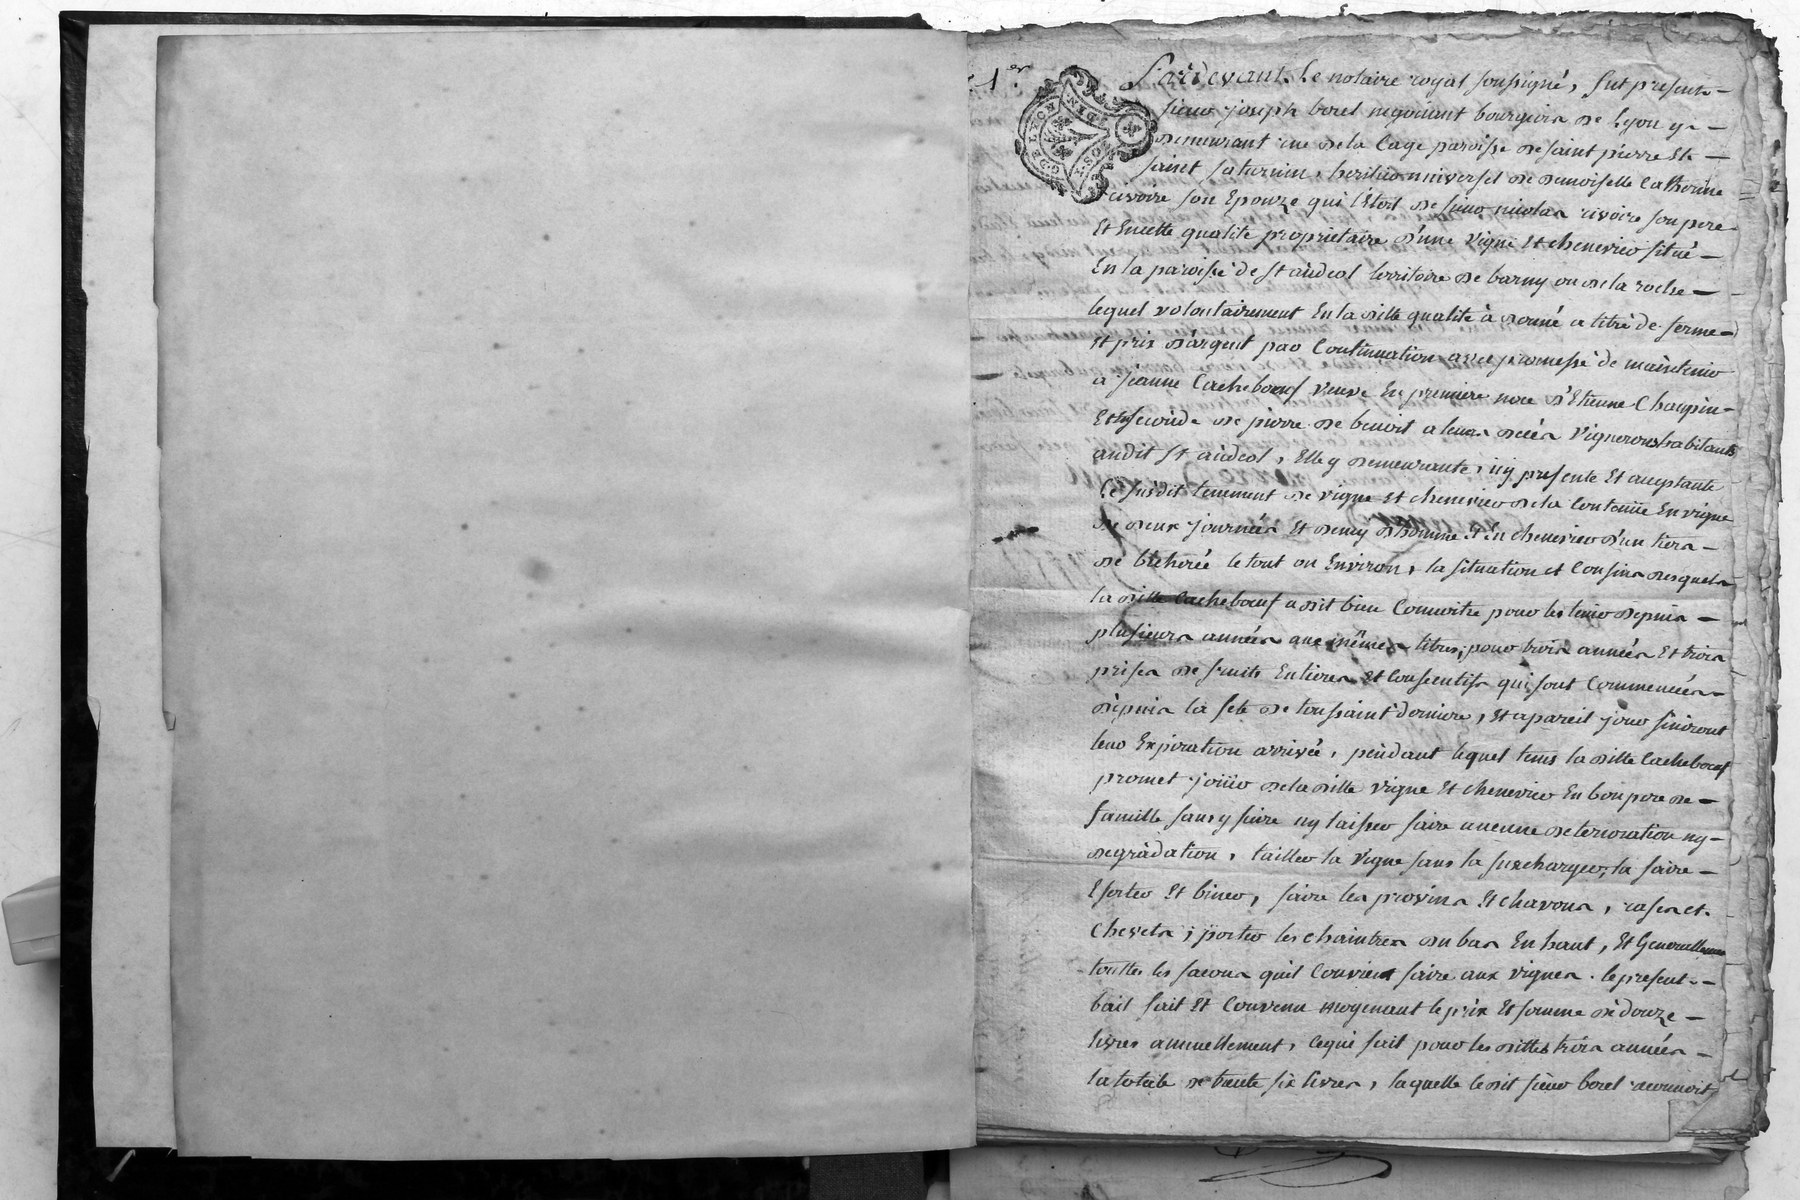 1er
Pardevant. Le notaire royal soussigné, fut présent
sieur joseph borel négociant bourgeois de Lyon y
demeurant rue de la Cage paroisse de saint pierre Et
saint saturnin, heritier universel de demoiselle Catherine
rivoire son Epouze qui l'étoit de sieur nicolas rivoire son pere
Et En cette qualité proprietaire d'une vigne Et chenevier situé
En la paroisse de st andeol territoire de barny ou de la roche
lequel volontairement En la ditte qualité à donné a titre de ferme
Et prix d'argent par Continuation avec promesse de maintenir
a jeanne Cacheboeuf veuve En premiere noce d'Etienne Chaupin
Et En seconde de pierre de benoit a leurs décès vignerons habitants
audit st andeol, Elle y demeurante, icy presente Et acceptante
Le susdit tenement de vigne Et chenevier de la Contenüe En vigne
de deux journées Et demy d'homme Et En chenevier d'un tiers
de bicherée le tout ou Environ, la situation et Confins desquels
la ditte Cacheboeuf a dit bien Connoitre pour les tenir depuis
plusieurs années aux mêmes titres, pour trois années Et trois
prises de fruits Entieres Et Consecutifs qui sont Commencées
depuis la fete de toussaint derniere, Et a pareil jour finiront
leur Expiration arrivée, pendant lequel tems la ditte Cacheboeuf
promet joüir de la ditte vigne Et chenevier En bon pere de
famille sans y faire ny laisser faire aucune deterioration ny
degradation, tailler la vigne sans la surcharger, la faire
Eforter Et biner, faire les provins Et chavons, rases et
Chevets, porter les chaintres du bas En haut, Et Generallement
touttes les facons qu'il Convient faire aux vignes. le present
bail fait Et Convenu moyenant le prix Et somme de douze
livres annuellement, ce qui fait pour les dittes trois années
la totale de trente six livres, laquelle le dit sieur borel reconnoit